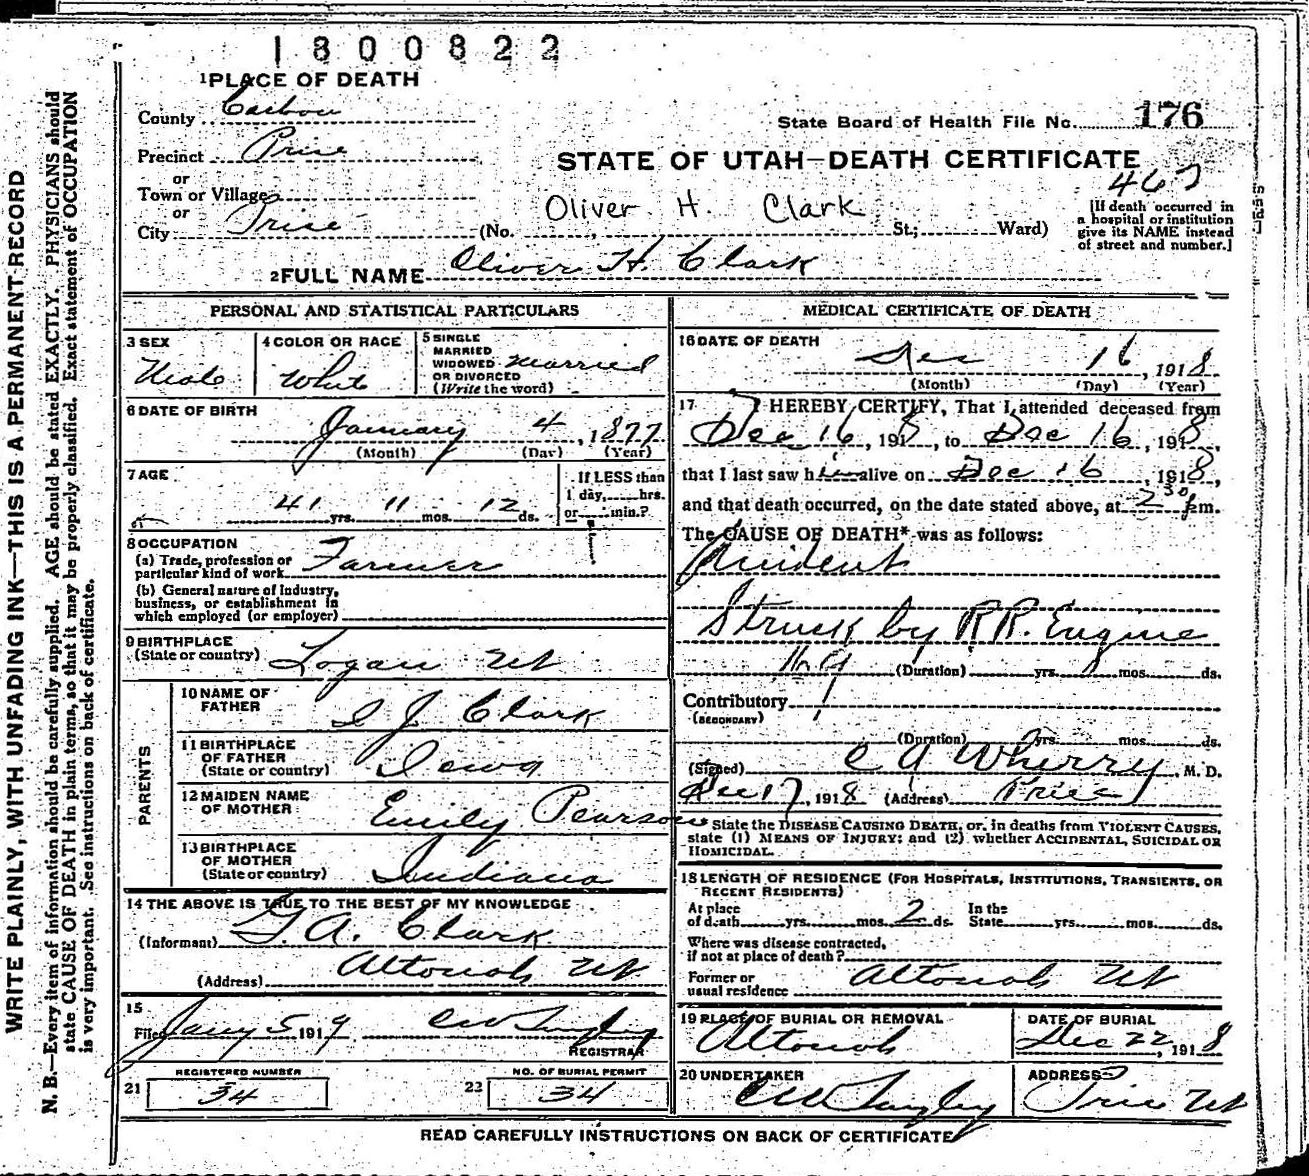 1800822
1 PLACE OF DEATH
County Carbon
State Board of Health File No. 176
Precinct Price
STATE OF UTAH—DEATH CERTIFICATE
or
Town or Village
or
Oliver H. Clark
City Price (No. St.; Ward)
[If death occurred in
a hospital or institution
give its NAME instead
of street and number.]
2 FULL NAME Oliver H Clark
PERSONAL AND STATISTICAL PARTICULARS
3 SEX
Male
4 COLOR OR RACE
White
5 SINGLE
MARRIED
WIDOWED
OR DIVORCED
(Write the word)
Married
6 DATE OF BIRTH
January 4, 1877
(Month) (Day) (Year)
7 AGE
41 yrs. 11 mos. 12 ds.
If LESS than
1 day, hrs.
or min.?
8 OCCUPATION
(a) Trade, profession or
particular kind of work Farmer
(b) General nature of industry,
business, or establishment in
which employed (or employer)
9 BIRTHPLACE
(State or country) Logan Ut
PARENTS
10 NAME OF
FATHER I J Clark
11 BIRTHPLACE
OF FATHER
(State or country) Iowa
12 MAIDEN NAME
OF MOTHER Emily Pearson
13 BIRTHPLACE
OF MOTHER
(State or country) Indiana
14 THE ABOVE IS TRUE TO THE BEST OF MY KNOWLEDGE
(Informant) G. A. Clark
(Address) Altonah Ut
15
Filed Jany 5 1919
REGISTRAR
REGISTERED NUMBER
21 34
NO. OF BURIAL PERMIT
22 34
MEDICAL CERTIFICATE OF DEATH
16 DATE OF DEATH
Dec 16, 1918
(Month) (Day) (Year)
17 I HEREBY CERTIFY, That I attended deceased from
Dec 16, 1918, to Dec 16, 1918,
that I last saw him alive on Dec 16, 1918,
and that death occurred, on the date stated above, at 2 30 pm.
The CAUSE OF DEATH* was as follows:
Accident
Struck by R.R. Engine
(Duration) yrs. mos. ds.
Contributory
(SECONDARY)
(Duration) yrs. mos. ds.
(Signed) C A Wherry, M. D.
Dec 17, 1918 (Address) Price
State the DISEASE CAUSING DEATH, or, in deaths from VIOLENT CAUSES,
state (1) MEANS OF INJURY; and (2) whether ACCIDENTAL, SUICIDAL OR
HOMICIDAL.
18 LENGTH OF RESIDENCE (FOR HOSPITALS, INSTITUTIONS, TRANSIENTS, OR
RECENT RESIDENTS)
At place
of death yrs. mos. 2 ds. In the
State yrs. mos. ds.
Where was disease contracted,
if not at place of death?
Former or
usual residence Altonah Ut
19 PLACE OF BURIAL OR REMOVAL
Altonah
DATE OF BURIAL
Dec 22, 1918
20 UNDERTAKER
ADDRESS
Price Ut
READ CAREFULLY INSTRUCTIONS ON BACK OF CERTIFICATE
WRITE PLAINLY, WITH UNFADING INK—THIS IS A PERMANENT RECORD
N. B.—Every item of information should be carefully supplied. AGE should be stated EXACTLY. PHYSICIANS should
state CAUSE OF DEATH in plain terms, so that it may be properly classified. Exact statement of OCCUPATION
is very important. See instructions on back of certificate.